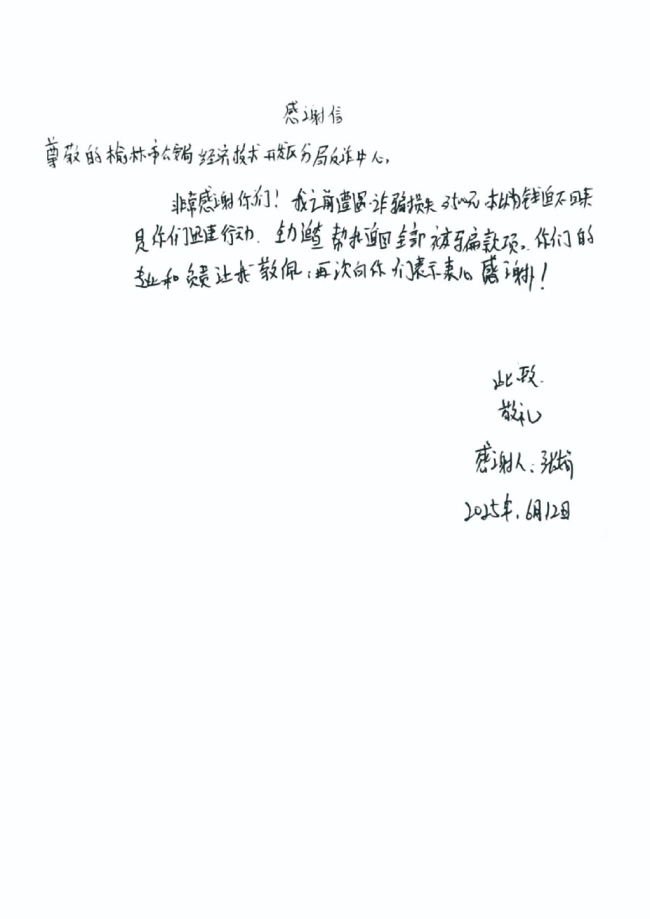 感谢信
尊敬的榆林市公安局经济技术开发区分局反诈中心,
非常感谢你们！我之前遭遇诈骗损失3500元本以为钱追不回来
是你们迅速行动.全力追查帮我追回全部被骗款项。你们的
专业和负责让我敬佩,再次向你们表示衷心感谢！
此致.
敬礼
感谢人:张
2025年.6月12日